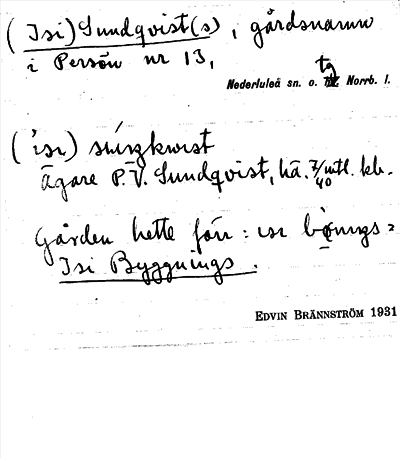 (Isi) Sundqvist(s), gårdsnamn
i Persön nr 13,
Nederluleå sn. o. tg Norrb. l.
('isı) súnzkwıst
ägare P. V. Sundqvist, hä. 7/40 mtl. kb.
Gården hette förr: ısı bŏ̤nıŋs =
Isi Byggnings.
EDVIN BRÄNNSTRÖM 1931